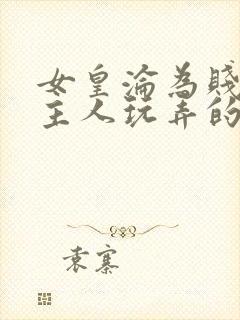 女皇淪為賤
主人玩弄的
袁寨